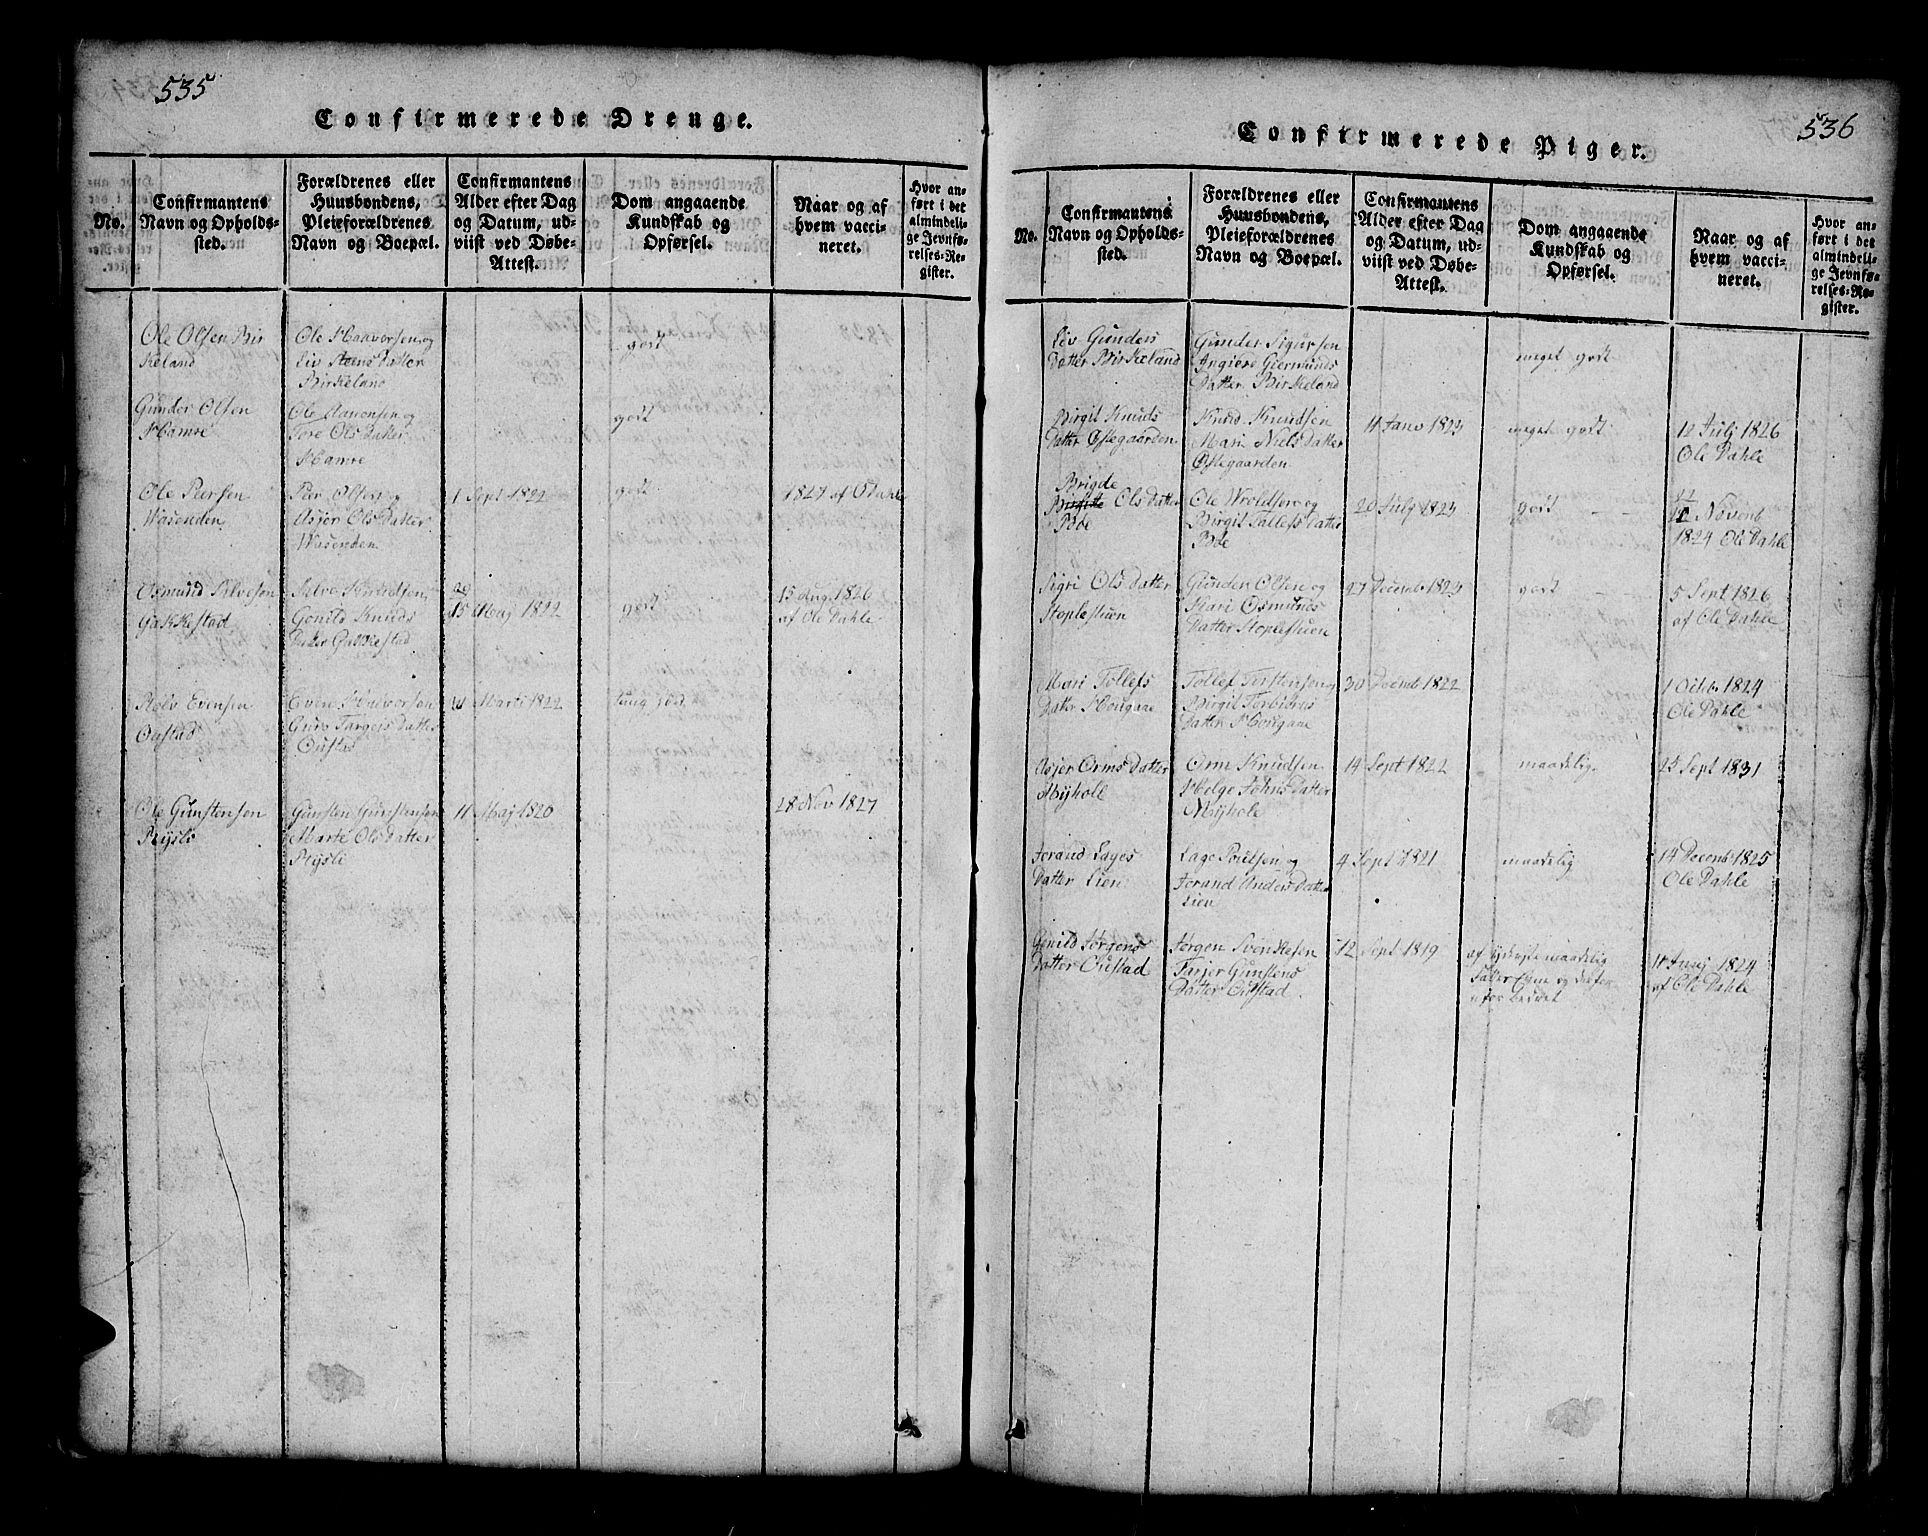 535
Confirmerede Drenge.
No.
Confirmantens
Navn og Opholds-
sted.
Forældrenes eller
Huusbondens,
Pleieforældrenes
Navn og Boepæl.
Confirmantens
Alder efter Dag
og Datum, ud-
viist ved Døbe-
Attest.
Dom angaaende
Kundskab og
Opførsel.
Naar og af
hvem vacci-
neret.
Hvor an-
ført i det
almindeli-
ge Jevnfø-
relses-Re-
gister.
Ole Olsen Bir
keland
Ole Haavorsen og
Liv Steens Datter
Birkeland
godt
Gunder Olsen
Hamre
Ole Aanonsen og
Tore Ols Datter
Hamre
godt
Ole Peersen
Wasenden
Peer Olsen og
Asjer Ols Datter
Wasenden
1 Sept 1822
godt
1827 af O Dahle
Osmund Salvesen
Gakkestad
Salve Knudsen
Gonild Knuds
Datter Gakkestad
15 Maj 1822
godt
15 Aug. 1826
af Ole Dahle
Evensen
Oustad
Even Halvorsen
Guro Targers Datter
Oustad
Marti 1822
Ole Gunstensen
Rysli
Gunsten Gunstensen
Marte Ols Datter
Rysli
11 Maj 1820
28 Nov 1827
536
Confirmerede Piger.
No.
Confirmantens
Navn og Opholds-
sted.
Forældrenes eller
Huusbondens,
Pleieforældrenes
Navn og Boepæl.
Confirmantens
Alder efter Dag
og Datum, ud-
viist ved Døbe-
Attest.
Dom angaaende
Kundskab og
Opførsel.
Naar og af
hvem vacci-
neret.
Hvor an-
ført i det
almindeli-
ge Jevnfø-
relses-Re-
gister.
Liv Gunders
Datter Birkeland
Gunder Sigursen
Angierd Giermunds
Datter Birkeland
meget godt
Birgit Knuds
Datter Øslegaarden
Knud Knudsen
Mari Niels Datter
Øslegaarden
11 Janv 1823
meget godt
12 Julj 1826
Ole Dahle
Brigde
Birgitte Ols Datter
Bøe
Ole Wroldsen og
Birgit Tallefs Datter
Bøe
20 July 1823
godt
11
Novemb
1824 Ole Dahle
Sigri Ols Datter
Stoplestuen
Gunder Olsen og
Kari Osmunds
Datter Stoplestuen
27 Decemb 1823
godt
5 Sept 1826
af Ole Dahle
Mari Tollefs
Datter Hougane
Tollef Torstensen og
Birgit Torbiørns
Datter Hougane
30 Decemb 1822
1 Octob 1824
Ole Dahle
Asjer Orms Datter
Myhole
Orm Knudsen
Helge Johns Datter
Myhole
14 Sept 1822
maadelig
25 Sept 1831
Jorand Lages
Datter Lien
Lage Poulsen og
Jorand Anders Datter
Lien
4 Sept 1821
maadelig
14 Decemb 1825
Ole Dahle
Gonild Jørgens
Datter Oustad
Jørgen Svenkesen
Tarjer Gunstens
Datter Oustad
12 Sept 1819
maadelig
11 Junj 1824
af Ole Dahle